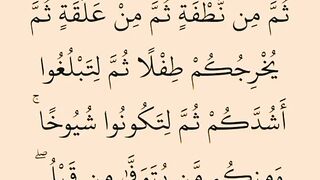 ثُمَّ مِن نُّطْفَةٍ ثُمَّ مِنْ عَلَقَةٍ ثُمَّ
يُخْرِجُكُمْ طِفْلًا ثُمَّ لِتَبْلُغُوا
أَشُدَّكُمْ ثُمَّ لِتَكُونُوا شُيُوخًا ۚ
وَمِنكُم مَّن يُتَوَفَّىٰ مِن قَبْلُ ۖ